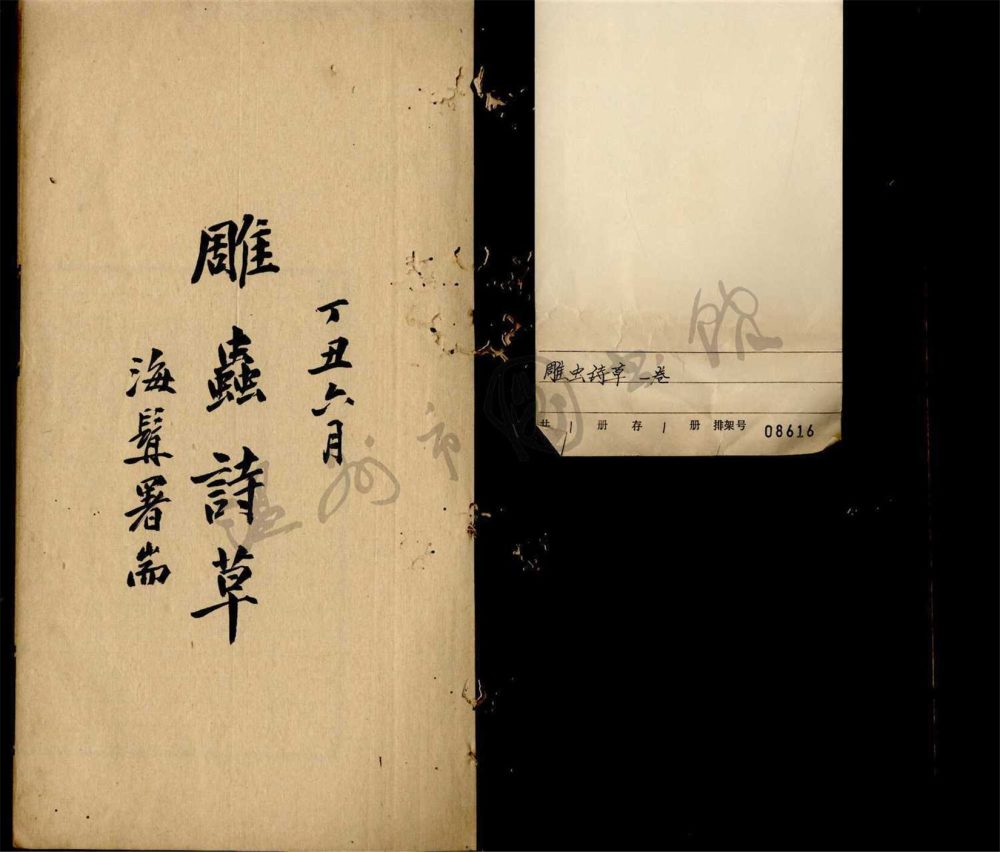 丁丑六月
雕蟲詩草
海髯署耑
雕虫诗草 一卷
共 1 册 存 1 册 排架号 08616
温州市图书馆